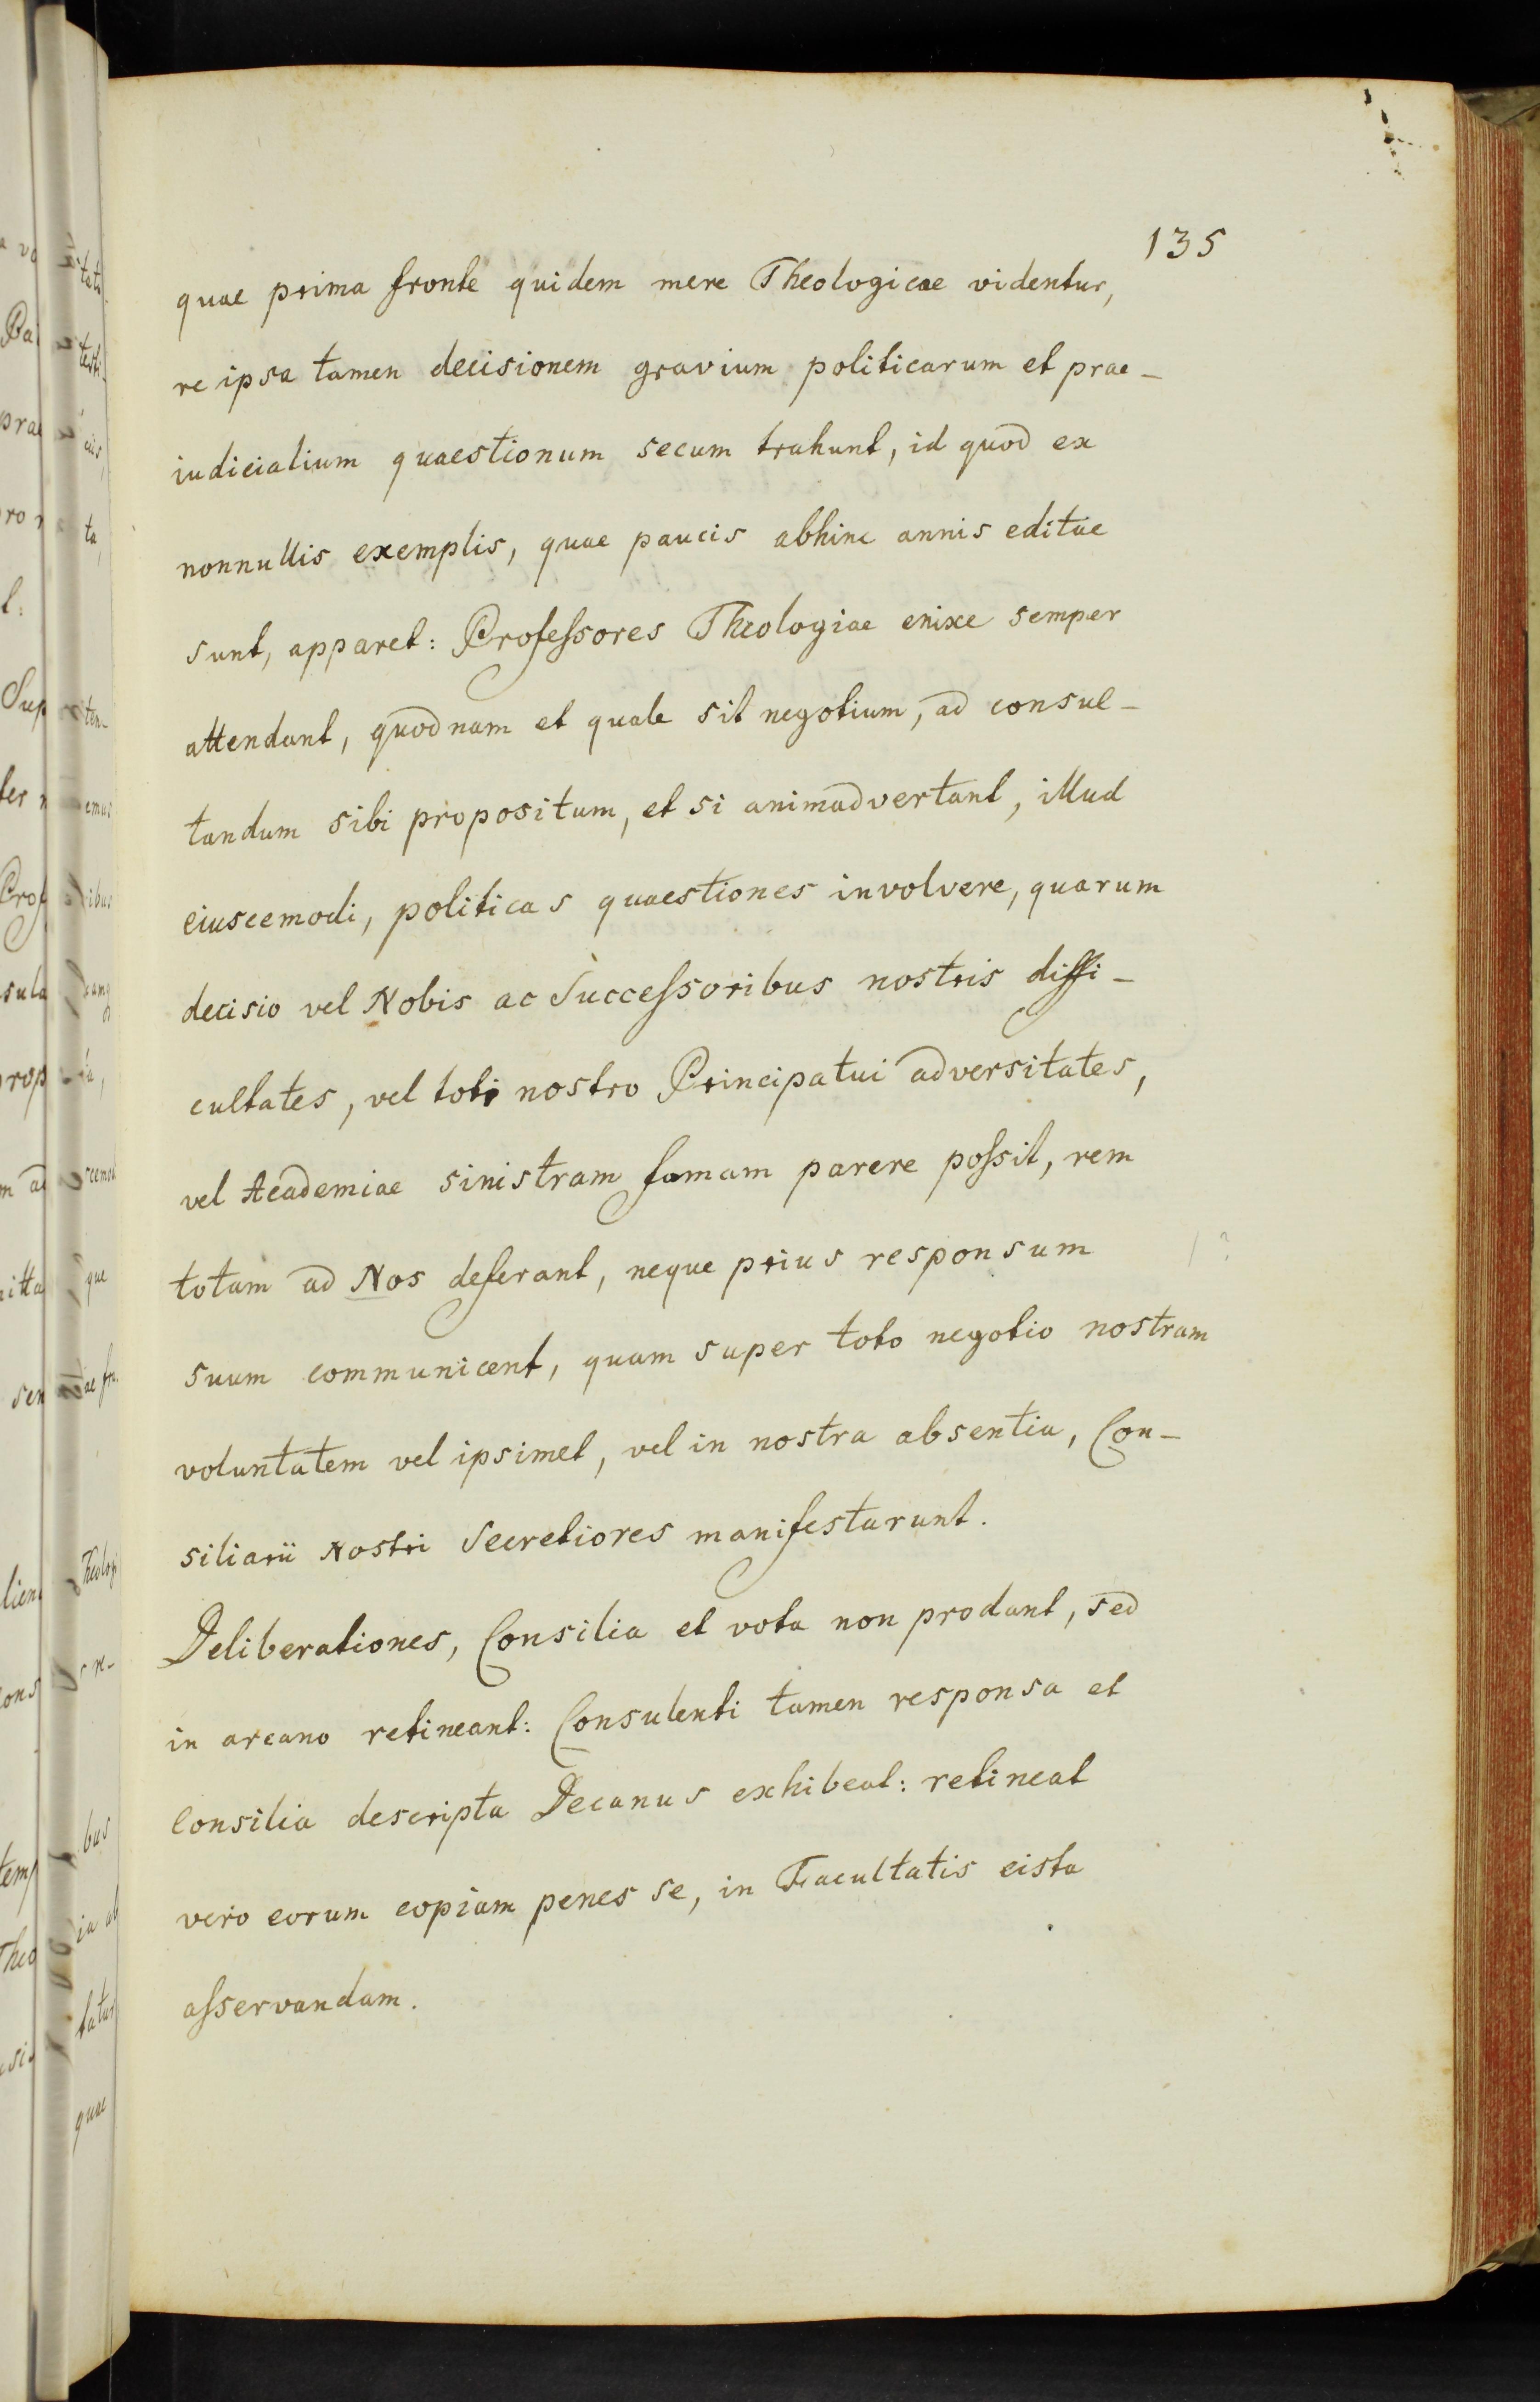 135
quae prima fronte quidem mere Theologicae videntur,
re ipsa tamen decisionem gravium politicarum et prae-
iudicialium quaestionum secum trahunt, id quod ex
nonnullis exemplis, quae paucis abhinc annis editae
sunt, apparet: Professores Theologiae enixe semper
attendant, quodnam et quale sit negotium, ad consul-
tandum sibi propositum, et si animadvertant, illud
eiuscemodi, politicas quaestiones involvere, quarum
decisio vel Nobis ac Successoribus nostris diffi-
cultates, vel toti nostro Principatui adversitates,
vel Academiae sinistram famam parere possit, rem
totam ad Nos deferant, neque prius responsum
suum communicent, quam super toto negotio nostram
voluntatem vel ipsimet, vel in nostra absentia, Con-
siliarii Nostri Secretiores manifestarunt.
Deliberationes, Consilia et vota non prodant, sed
in arcano retineant: Consulenti tamen responsa et
Consilia descripta Decanus exhibeat: retineat
vero eorum copiam penes se, in Facultatis cista
asservandam.